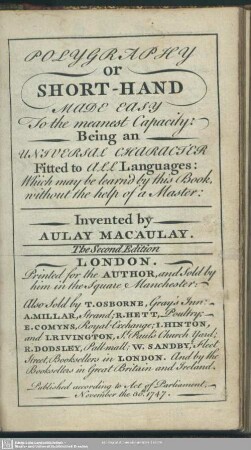 POLYGRAPHY
or
SHORT-HAND
MADE EASY
To the meanest Capacity:
Being an
UNIVERSAL CHARACTER
Fitted to ALL Languages:
Which may be learn'd by this Book,
without the help of a Master:
Invented by
AULAY MACAULAY.
The Second Edition
LONDON.
Printed for the AUTHOR, and Sold by
him in the Square Manchester:
Also Sold by T. OSBORNE, Gray's Inn:
A. MILLAR, Strand; R. HETT, Poultry:
E. COMYNS, Royal Exchange; I. HINTON,
and I. RIVINGTON, St. Paul's Church Yard;
R. DODSLEY, Pall-mall; W. SANDBY, Fleet
Street, Booksellers in LONDON. And by the
Booksellers in Great Britain and Ireland.
Published according to Act of Parliament,
November the 1747.